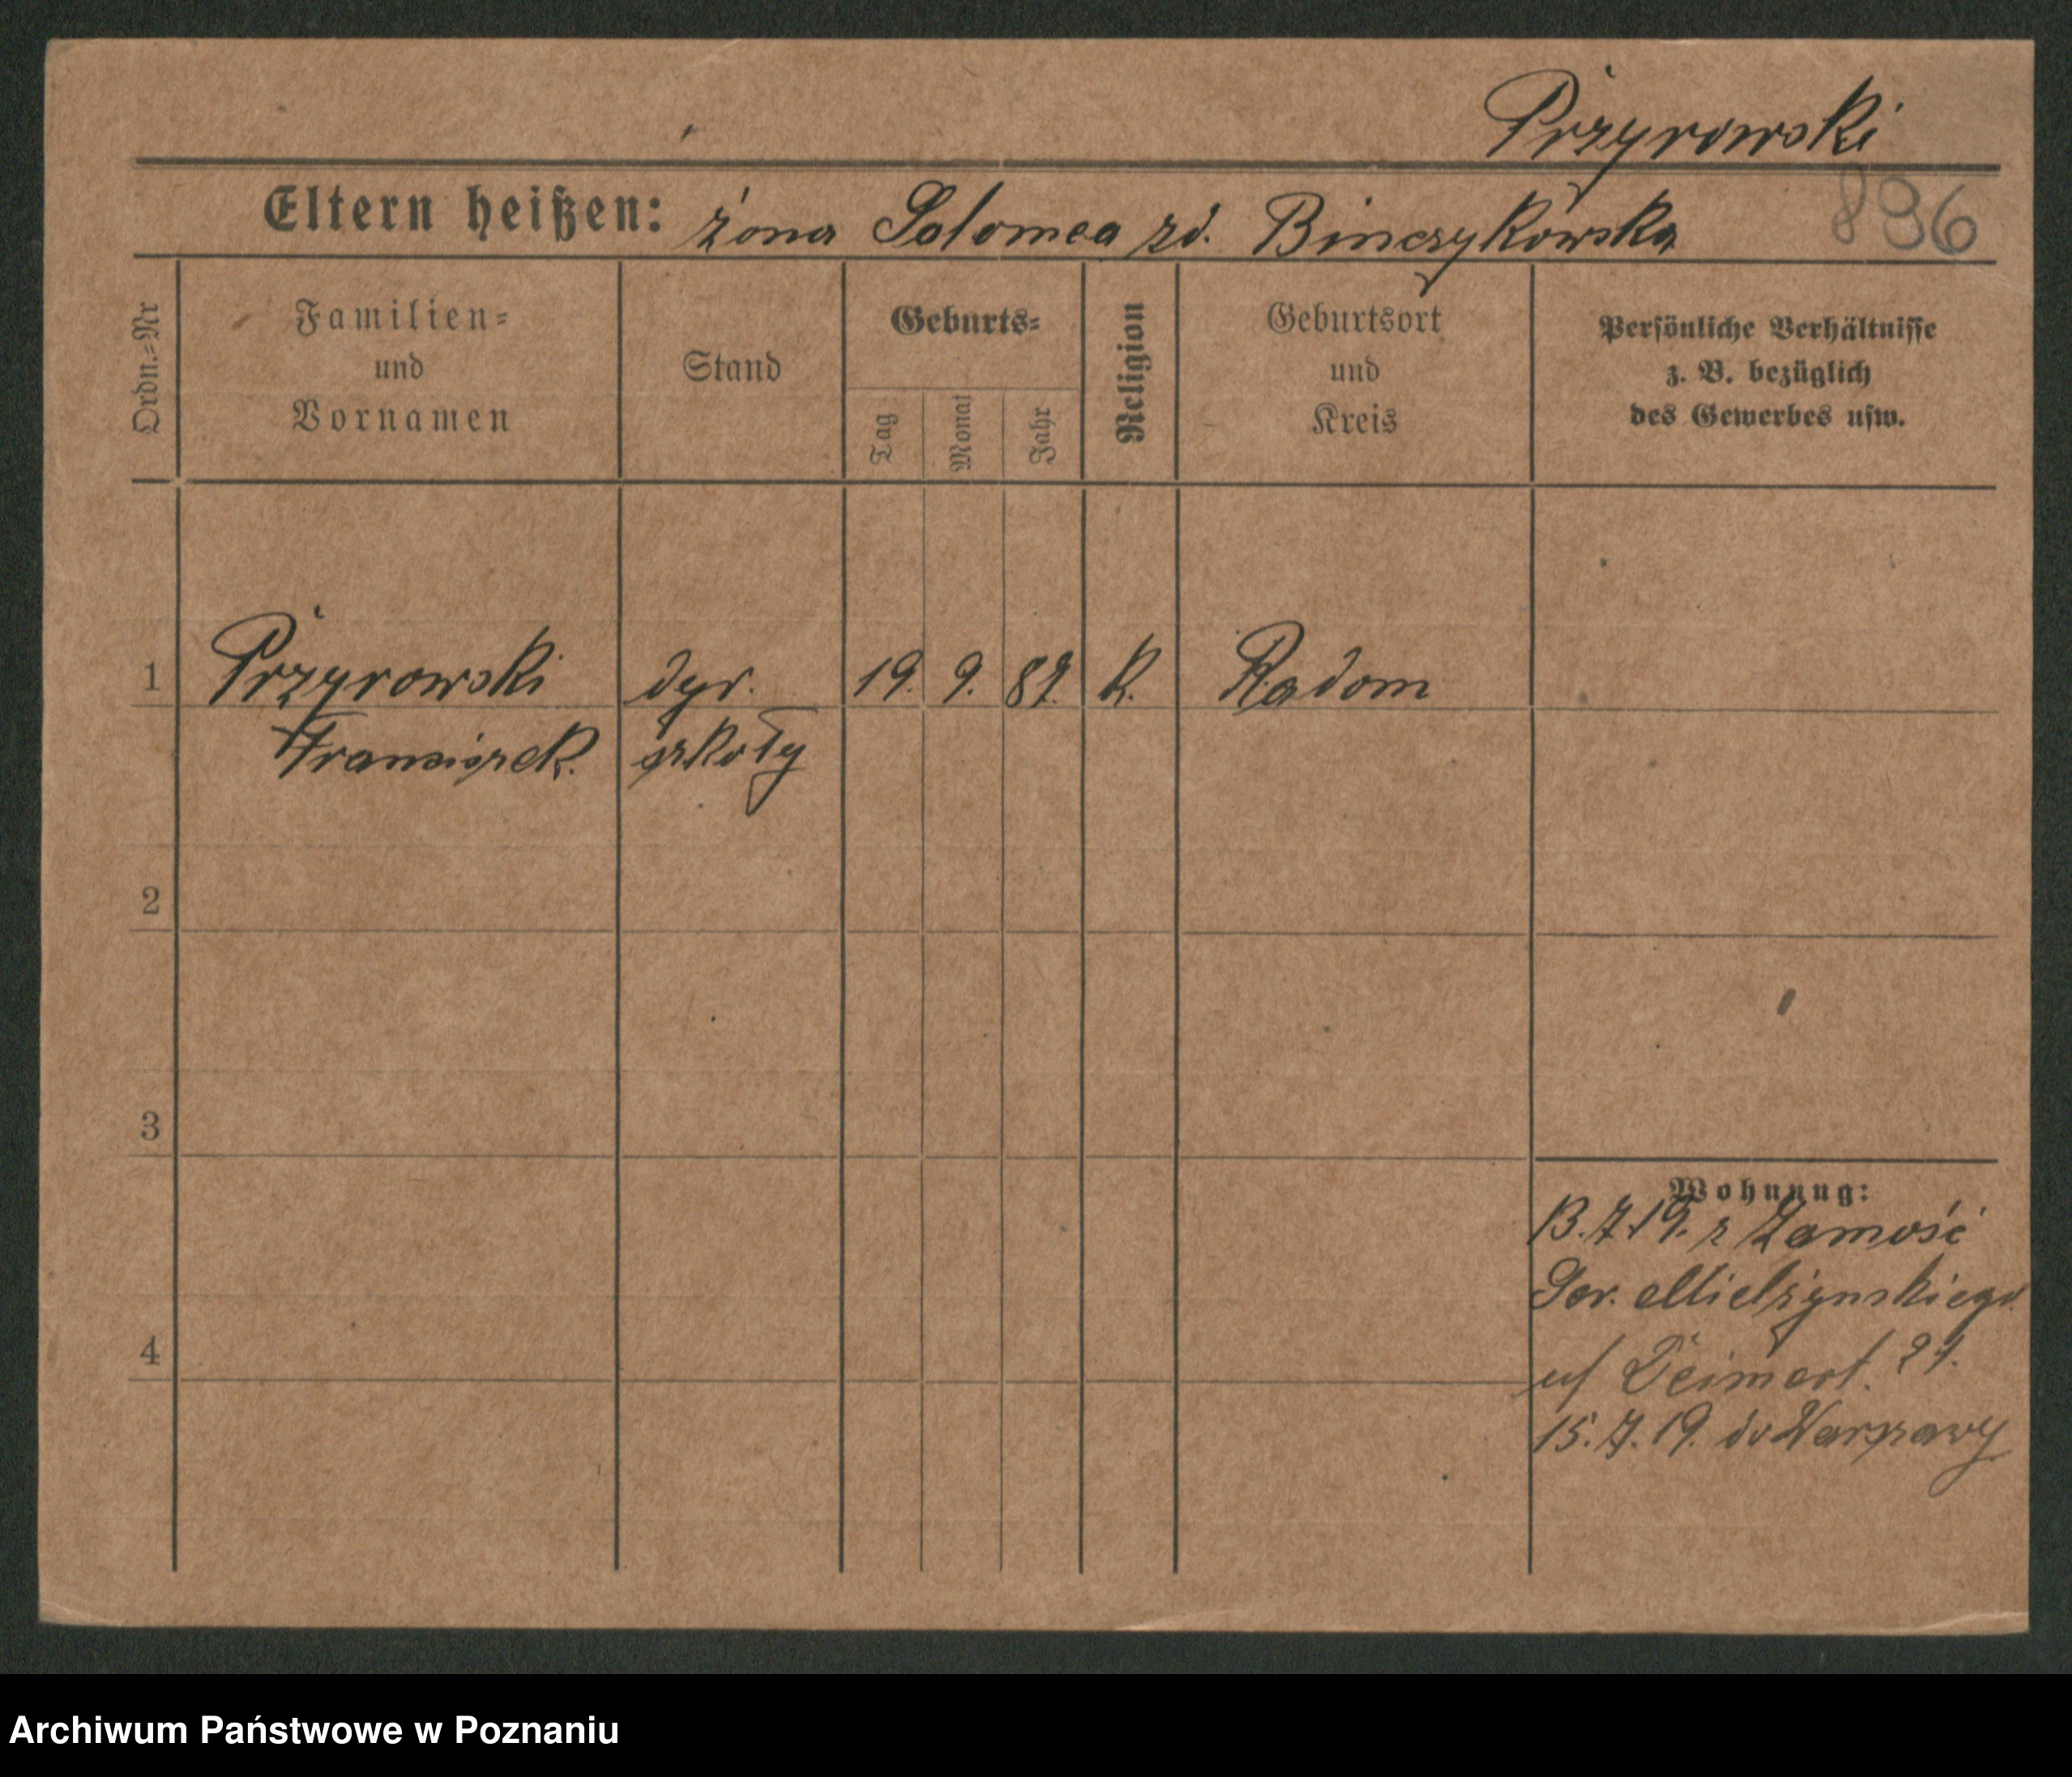 Przyrowski
896
Eltern heißen: żona Salomea zd. Binczykowska
Ordn.=Nr
Familien=
und
Vornamen
Stand
Geburts=
Tag
Monat
Jahr
Religion
Geburtsort
und
Kreis
Persönliche Verhältnisse
z. B. bezüglich
des Gewerbes usw.
1 Przyrowski dyr. 19. 9. K. Radom
Franciszek szkoły
2
3
4
Wohnung:
13.7.19. z Zamość
Mielżynskiego
15.7.19. do Warszawy
Archiwum Państwowe w Poznaniu